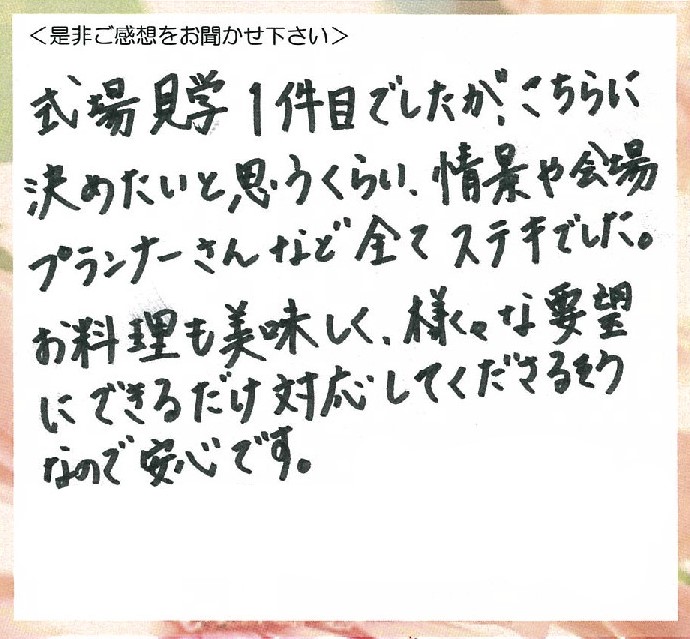 ＜是非ご感想をお聞かせ下さい＞
式場見学1件目でしたが、こちらに
決めたいと思うくらい、情景や会場
プランナーさんなど全てステキでした。
お料理も美味しく、様々な要望
にできるだけ対応してくださる
なので安心です。